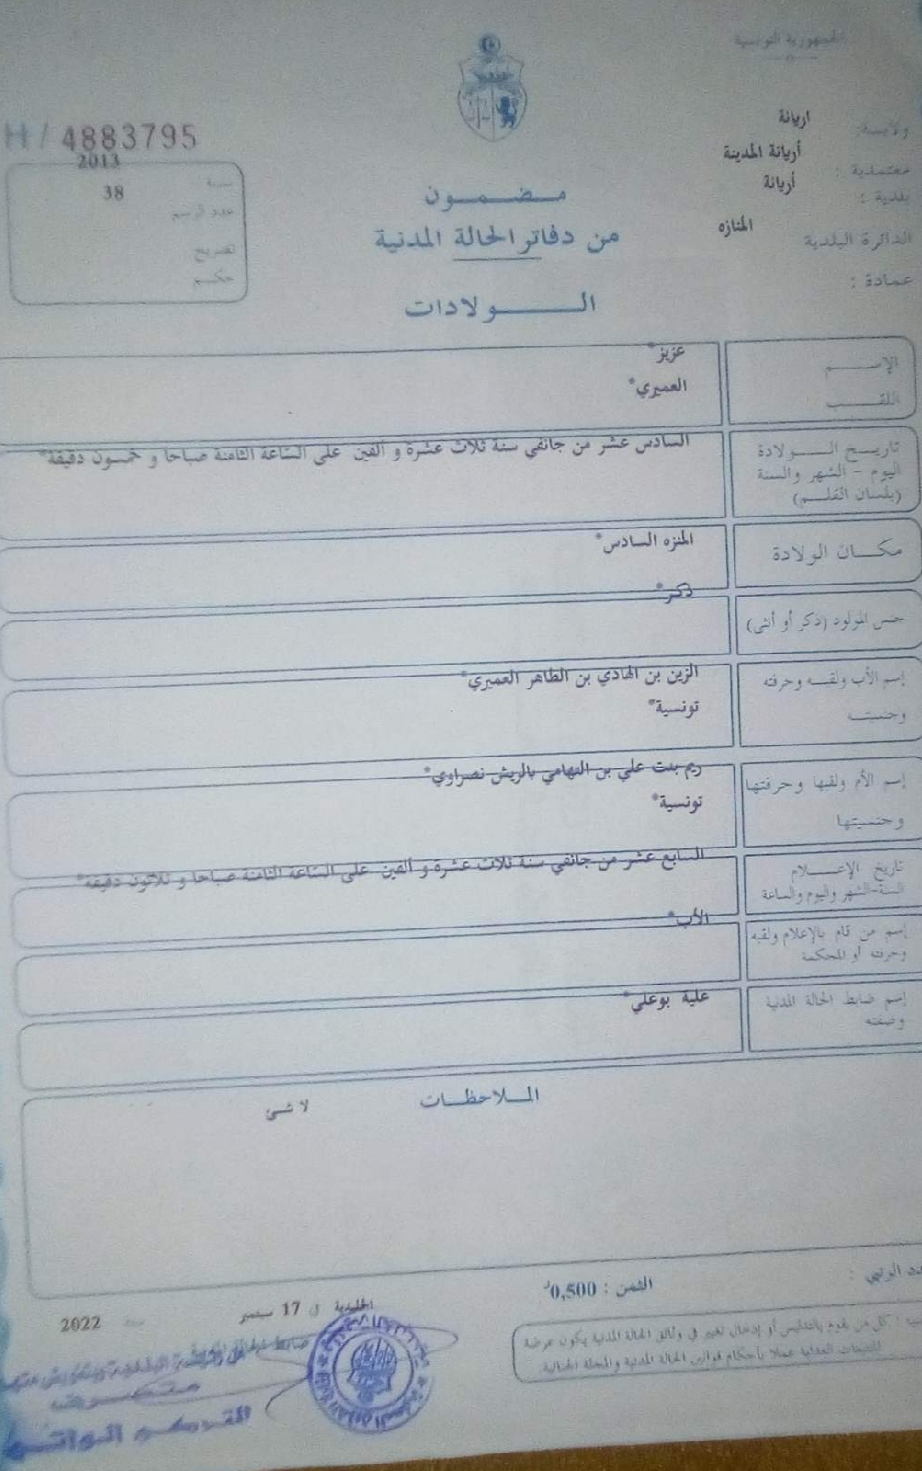 الجمهورية التونسية
H/4883795
ولاية: اريانة
معتمدية: أريانة المدينة
بلدية: أريانة
الدائرة البلدية المنازه
عمادة:
سنة 2013
عدد الرسم 38
تصريح
حكم
مضمون
من دفاتر الحالة المدنية
الولادات
الإسم عزيز*
اللقب العميري*
تاريخ الولادة السادس عشر من جانفي سنة ثلاث عشرة و ألفين على الساعة الثامنة صباحا و خمسون دقيقة*
اليوم - الشهر والسنة
(بلسان القلم)
مكان الولادة المنزه السادس*
جنس المولود (ذكر أو أنثى) ذكر*
إسم الأب ولقبه وحرفته الزين بن الهادي بن الطاهر العميري*
وجنسيته تونسية*
إسم الأم ولقبها وحرفتها ريم بنت علي بن التهامي بالريش نصراوي*
وجنسيتها تونسية*
تاريخ الإعلام السابع عشر من جانفي سنة ثلاث عشرة و ألفين على الساعة الثامنة صباحا و ثلاثون دقيقة*
السنة-الشهر واليوم والساعة
إسم من قام بالإعلام ولقبه الأب*
وحرفته أو المحكمة
إسم ضابط الحالة المدنية علية بوعلي*
وصفته
الملاحظات
لا شئ
الثمن : 0,500د
في 17 سبتمبر سنة 2022
كل من يقوم بالتدليس أو إدخال تغيير في وثائق الحالة المدنية يكون عرضة
للتتبعات العدلية عملا بأحكام قوانين الحالة المدنية والمجلة الجنائية